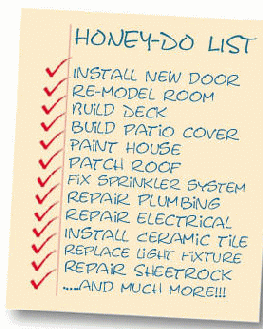 HONEY-DO LIST
INSTALL NEW DOOR
RE-MODEL ROOM
BUILD DECK
BUILD PATIO COVER
PAINT HOUSE
PATCH ROOF
FIX SPRINKLER SYSTEM
REPAIR PLUMBING
REPAIR ELECTRICAL
INSTALL CERAMIC TILE
REPLACE LIGHT FIXTURE
REPAIR SHEETROCK
.....AND MUCH MORE!!!